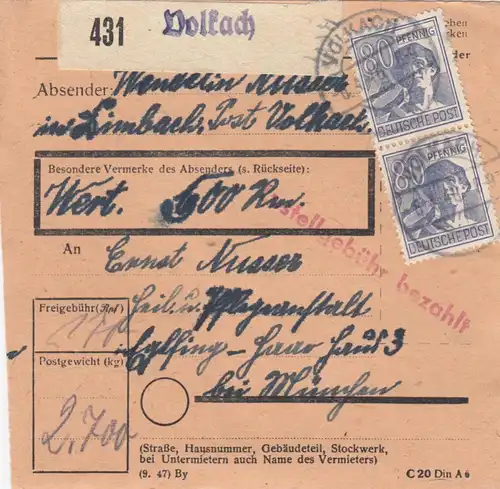 431 Volkach
VOLKACH
80 PFENNIG
DEUTSCHE POST
80 PFENNIG
DEUTSCHE POST
Absender: Wendelin Nusser
in Limbach, Post Volkach
Besondere Vermerke des Absenders (s. Rückseite):
Wert. 600 Rm.
stellgebühr bezahlt
An
Ernst Nusser
Heil. u. Pflegeanstalt
Eglfing - Haar Haus 3
bei München
Freigebühr (Rpf)
Postgewicht (kg)
2,700
(Straße, Hausnummer, Gebäudeteil, Stockwerk,
bei Untermietern auch Name des Vermieters)
(9. 47) By
C 20 Din A 6